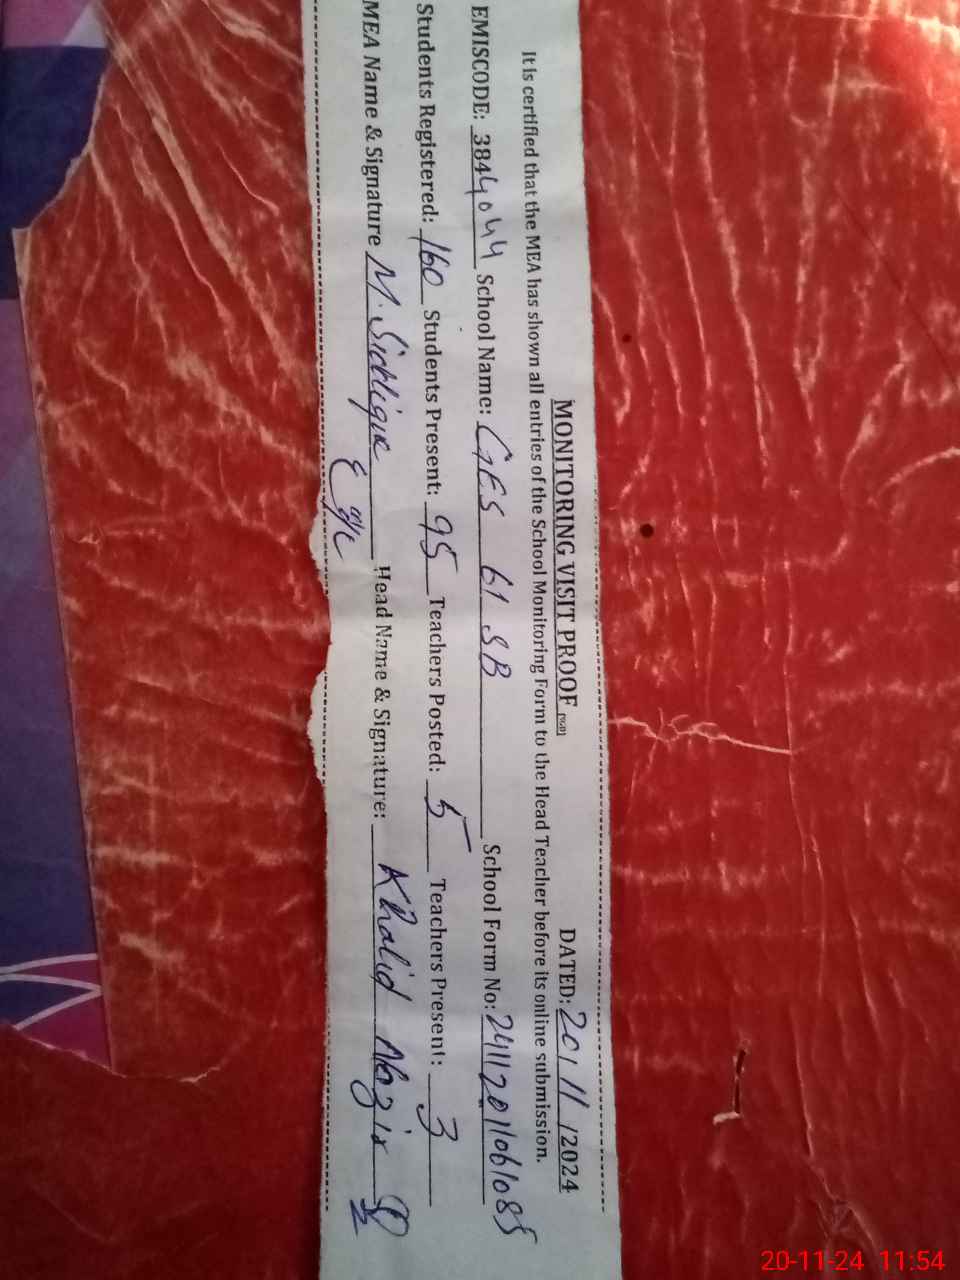 MONITORING VISIT PROOF DATED: 20/11/2024
It is certified that the MEA has shown all entries of the School Monitoring Form to the Head Teacher before its online submission.
EMISCODE: 3844044 School Name: GES 61 SB School Form No: 24112011061085
Students Registered: 160 Students Present: 95 Teachers Posted: 5 Teachers Present: 3
MEA Name & Signature M. Siddique Head Name & Signature: Khalid
20-11-24 11:54